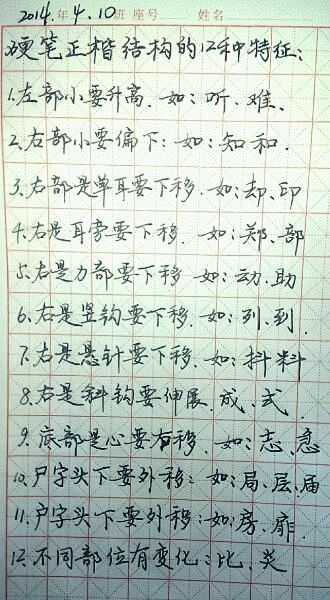 2014.年4.10班 座号 姓名
硬笔正楷结构的12种特征:
1.左部小要升高.如:听.难.
2.右部小要偏下:如:知和.
3.右部是单耳要下移.如:却、印
4.右是耳旁要下移.如:郑、部
5.右是力部要下移 如:动、助
6.右是竖钩要下移.如:列、到.
7.右是悬针要下移.如:抖料
8.右是斜钩要伸展.成、式.
9.底部是心要右移.如:志、急
10.尸字头下要外移:如:局、层、届
11.户字头下要外移:如:房、扉.
12.不同部位有变化:比、炎